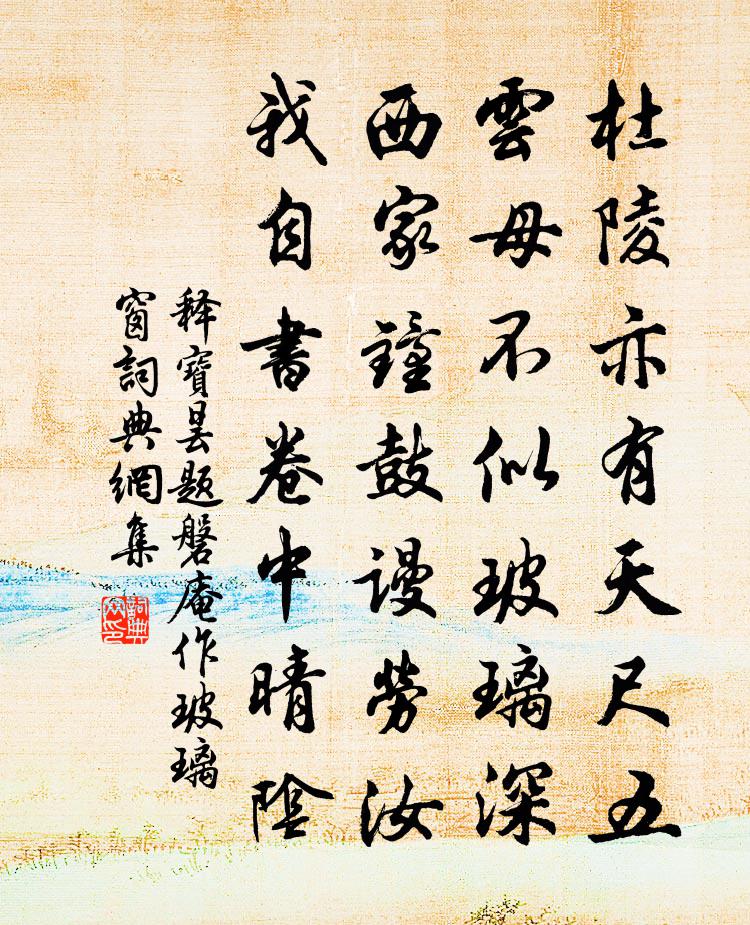 杜陵亦有天尺五
雲母不似玻璃深
西家鐘鼓謾勞汝
我自書卷中晴陰
释寶曇題磐庵作玻璃
窗詞典網集
詞典
网印